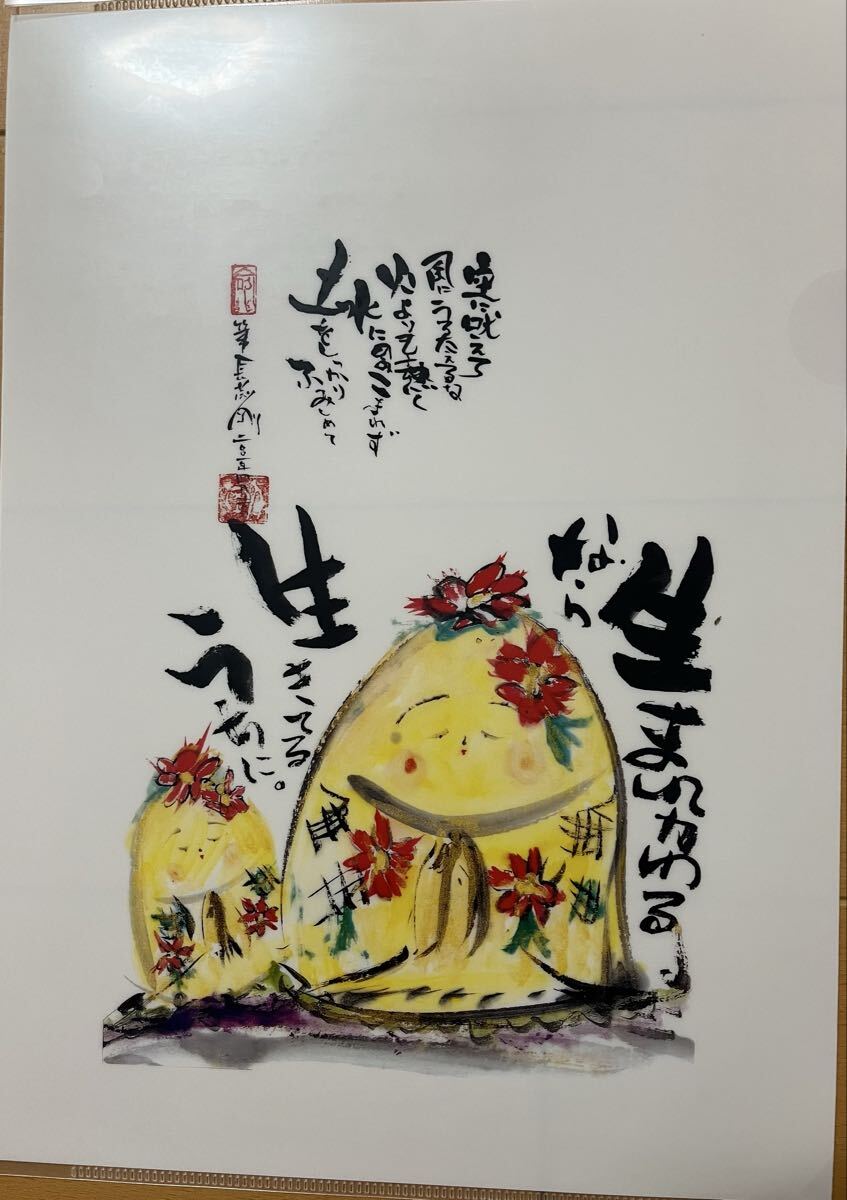 空に吠えて
風にうろたえるな
火よりも熱く
水にのみこまれず
土をしっかり
ふみしめて
生まれかわる
なら
生きてる
うちに。